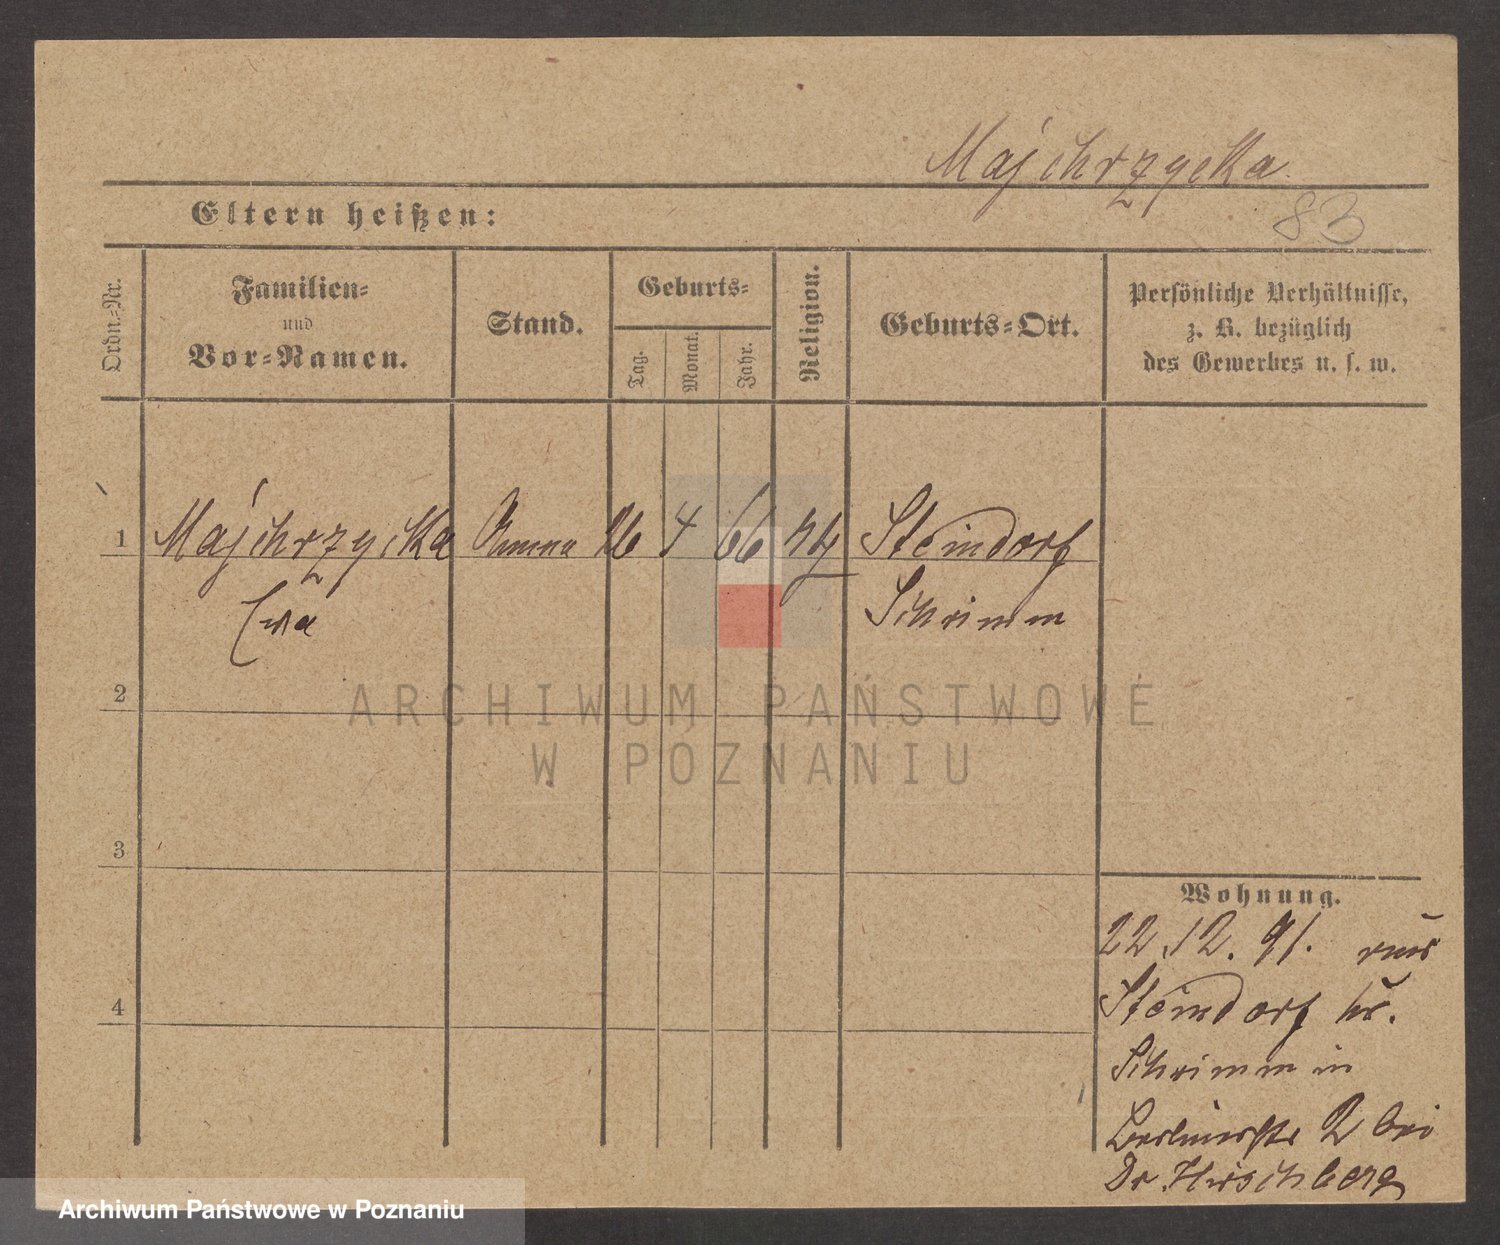 Majchrzycka
83
Eltern heißen:
Ordn.-Nr.
Familien-
und
Vor-Namen.
Stand.
Geburts-
Tag.
Monat.
Jahr.
Religion.
Geburts-Ort.
Persönliche Verhältnisse,
z. B. bezüglich
des Gewerbes u. s. w.
1 Majchrzycka Amme 26 4 66 kth Steindorf
Ewa Schrimm
2
ARCHIWUM PAŃSTWOWE
W POZNANIU
3
Wohnung.
22.12.91. aus
4 Steindorf Kr.
Schrimm in
Berlinerstr 2 bei
Dr. Hirschberg
Archiwum Państwowe w Poznaniu